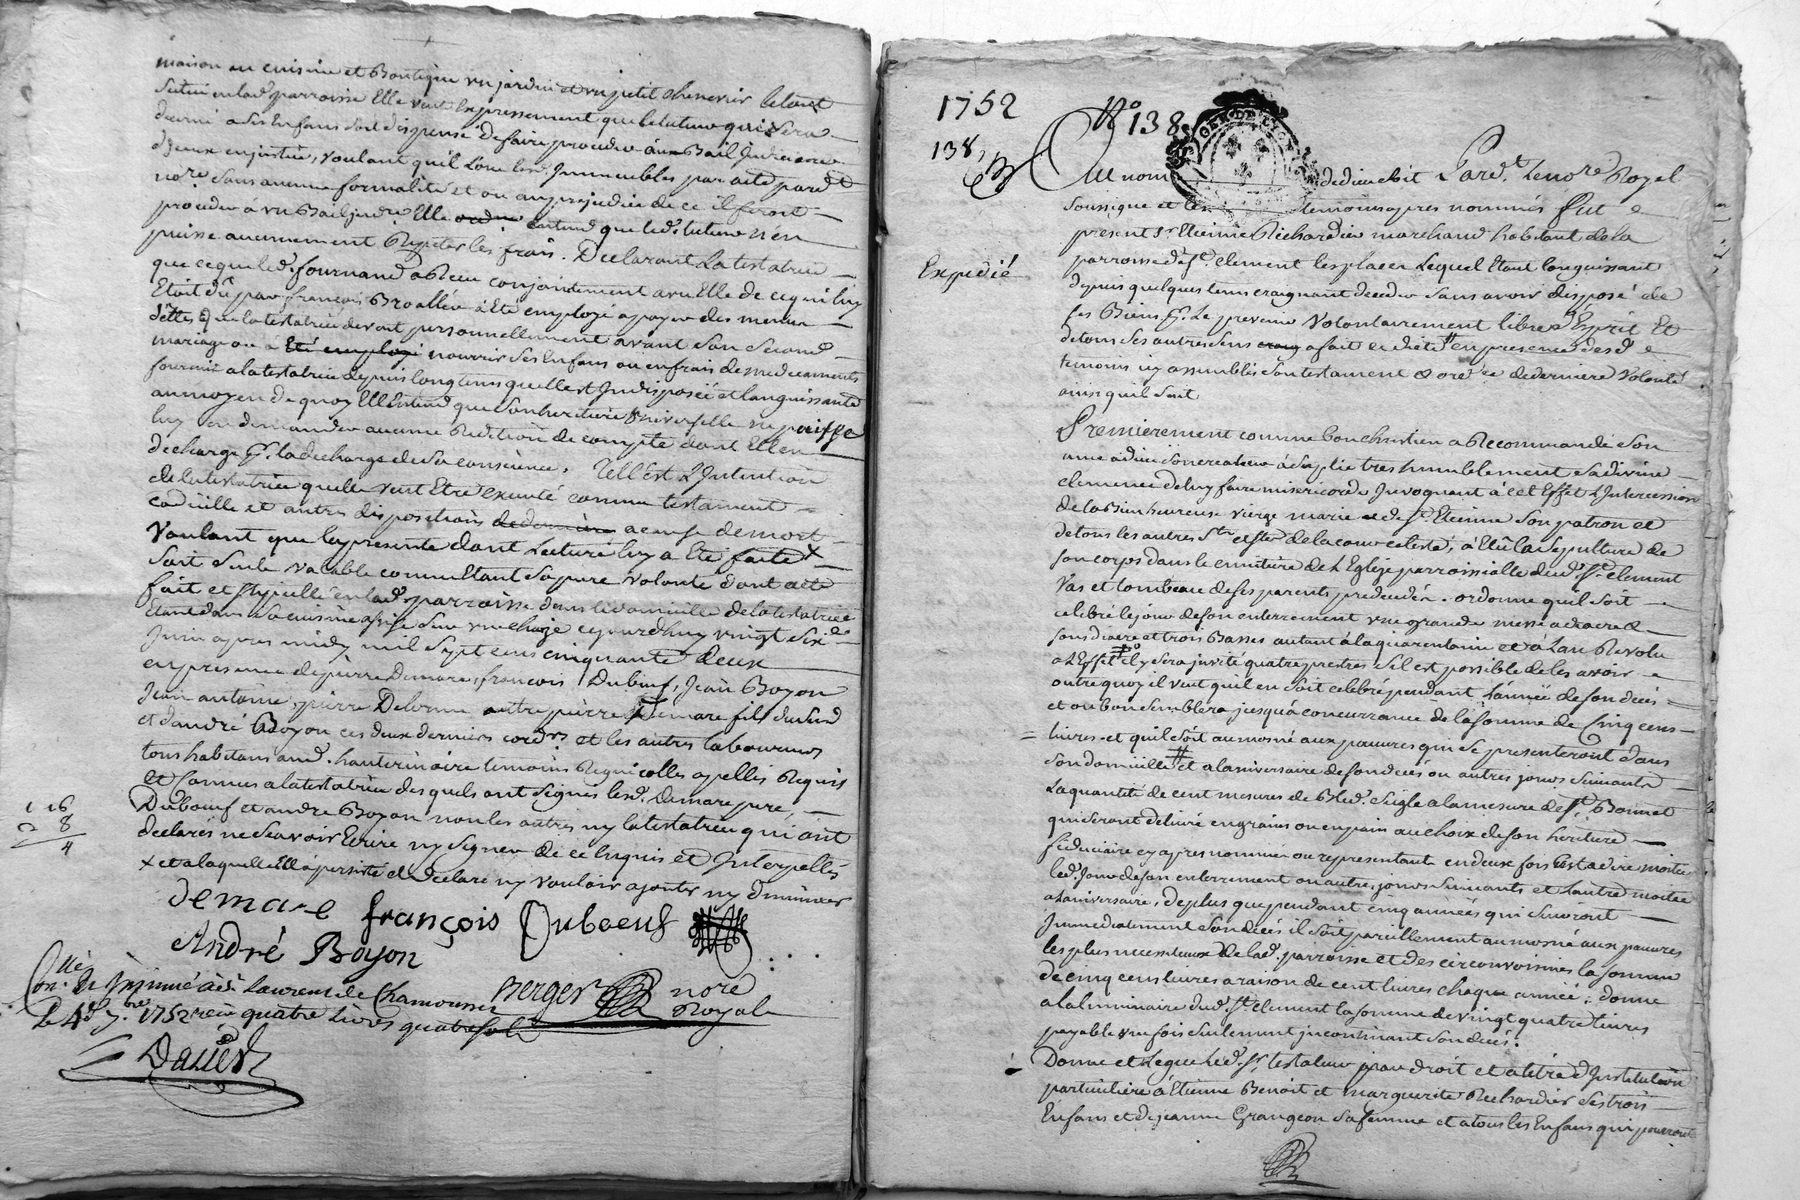 maison en cuisine et Boutique un jardin et un petit chenevier le tout
situé en lad. parroisse Elle veut Expressement que le tuteur qui sera
decerné a ses Enfans soit dispensé de faire proceder aux Bail Judiciaire
d'jceux en justice, voulant qu'il Loue lesd. Jmmeubles par acte pard.t
no.re sans aucune formalité et ou au prejudice de ce il feroit
proceder à un Bail judre Elle entend que led. tuteur n'en
puisse aucunement Repeter les frais. Declarant La testatrice
que ce que led. fournand a Reçu conjointement avec Elle de ce qui luy
Etoit dû par françois Broallier à Eté employé a payer des menues
dettes que la testatrice devoit personnellement avant son second
mariage ou a Eté employé nourrir ses Enfans ou en frais de medicaments
fournis a la testatrice depuis longtems qu'elle est Jndisposée et languissante
au moyen de quoy Elle Entend que son heritiere universelle ne puisse
luy en demander aucune Reddition de compte dont Elle en
décharge p.r la decharge de sa conscience. Tell'Est L'Intention
de la testatrice qu'elle veut Etre executé comme testament
codicille et autres dispositions de derniere a cause de mort
Voulant que les presente dont Lecture luy a Eté faite x
soit seule valable comm'Etant sa pure volonté dont acte
fait et stipullé en lad. parroisse dans le domicille de la testatrice
Etant dans sa cuisine assise sur une chaise ce jourd'huy vingt six de
Juin apres midy mil sept cens cinquante deux
en presence de pierre Demare, françois Duboeuf, Jean Boyon
Jean antoine, pierre Delorme autre pierre Demare fils dud.
et d'andré Boyon ces deux derniers cord.rs et les autres laboureurs
tous habitans aud. hauterivoire temoins Requicolles apellés Requis
et connus a la testatrice desquels ont signés lesd. Demare pere,
Duboeuf et andre Boyon non les autres ny la testatrice qui ont
declarés ne sçavoir Ecrire ny signer de ce Enquis et Jnterpellés
x et a laquelle Elle a persisté et declaré n'y vouloir ajouter ny diminuer
1 16
2 8
4
demare françois Duboeuf
André Boyon
Con.llé et Insinué à S.t Laurent de Chamousset
Berger nore
Le 4.e 7.bre 1752 reçu quatre Livres quatre sols
Royal
Daviet
1752 N.o 138
138.
GEN. DE LYON
Au nom de dieu soit Pard.t Le no.re Royal
soussigné et les temoins apres nommés fut
présent s.r Etienne Richardier marchand habitant de la
parroisse de S.t Clement les places Lequel Etant languissant
Expedié
depuis quelques tems craignant deceder sans avoir disposé de
ses Biens p.r Le prevenir volontairement libre d'Esprit Et
de tous ses autres sens a fait et dicté en presence desd.
temoins icy assemblés son testament & ord.ce de derniere volonté
ainsi qu'il suit
Premierement comme bon chretien a Recommandé son
ame a dieu son createur à suplié tres humblement sa divine
clemence de luy faire misericorde Jnvoquant à cet Effet L'Intercession
de la bien heureuse vierge marie de S.t Etienne son patron et
de tous les autres S.ts et S.tes de la cour celeste, à Elû la sepulture de
son corps dans le cimitière de L'Eglise parroissialle dud. S.t Clement
Vas et tombeau de ses parents predecedés. ordonne qu'il soit
celebré le jour de son enterrement une grande messe a diacre &
sousdiacre et trois Basses autant à la quarantaine et à L'an Revolu
a L'Effet d'y sera jnvité quatre prestres s'il est possible de les avoir
outre quoy il veut qu'il en soit celebré pendant L'année de son decés
et ou bon semblera jusqu'à concurrance de la somme de Cinq cens
livres et qu'il soit aumosné aux pauvres qui se presenteront dans
son domicille et a laniversaire de son decés ou autres jours suivants
La quantité de cent mesures de Bled seigle a la mesure de S.t Bonnet
qui seront delivré en grains ou en pain au choix de son heritiere
fiduciaire cy apres nommée ou representants en deux fois c'est a dire moitié
led. Jour de son enterrement ou autres jours suivants et L'autre moitié
a laniversaire, de plus que pendant cinq années qui suivront
Jmmediatement son decés il soit pareillement aumosné aux pauvres
les plus necessiteux de lad. parroisse et des circonvoisines la somme
de cinq cens livres a raison de cent livres chaque année; donne
a la luminaire dud. S.t Clement la somme de vingt quatre livres
payable une fois seulement jncontinant son decés.
Donne et Legue Led. s.r testateur par droit et a titre d'Jnstitution
particuliere à Etienne Benoît et marguerite Richardier ses trois
Enfans et de jeanne Grangeon sa femme et a tous les Enfans qui pourront